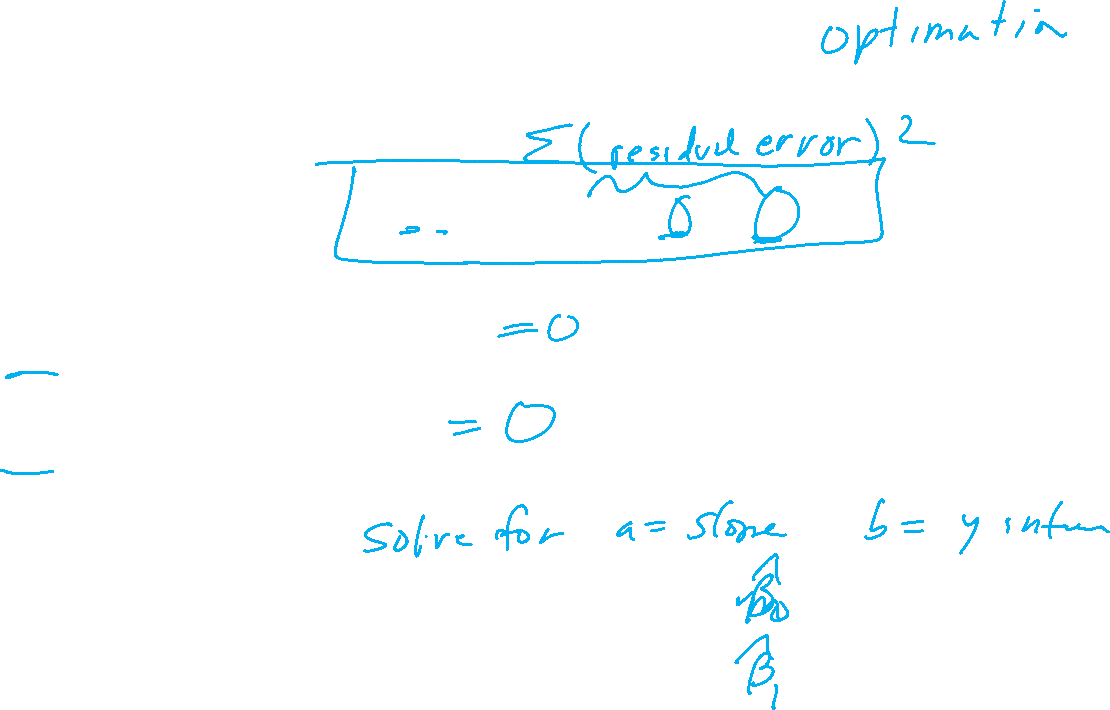 optimatin
Σ(residual error)²
= 0
= 0
Solve for a = slope b = y inter
β̂₀
β̂₁